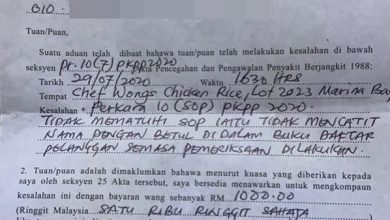 Tuan/Puan,
Suatu aduan telah dibuat bahawa tuan/puan telah melakukan kesalahan di bawah
seksyen pr. 10(7) PKPP 2020 Akta Pencegahan dan Pengawalan Penyakit Berjangkit 1988:
Tarikh 29/07/2020 Waktu 1630 HRS
Tempat Chef Wongs Chicken Rice, Lot 2023 Marina
Kesalahan Perkara 10 (SOP) PKPP 2020.
TIDAK MEMATUHI SOP IAITU TIDAK MENCATIT
NAMA DENGAN BETUL DIDALAM BUKU DAFTAR
PELANGGAN SEMASA PEMERIKSAAN DILAKUKAN.
2. Tuan/puan adalah dimaklumkan bahawa menurut kuasa yang diberikan kepada
saya oleh seksyen 25 Akta tersebut, saya bersedia menawarkan untuk mengkompaun
kesalahan ini dengan bayaran wang sebanyak RM. 1000.00
(Ringgit Malaysia SATU RIBU RINGGIT SAHAJA